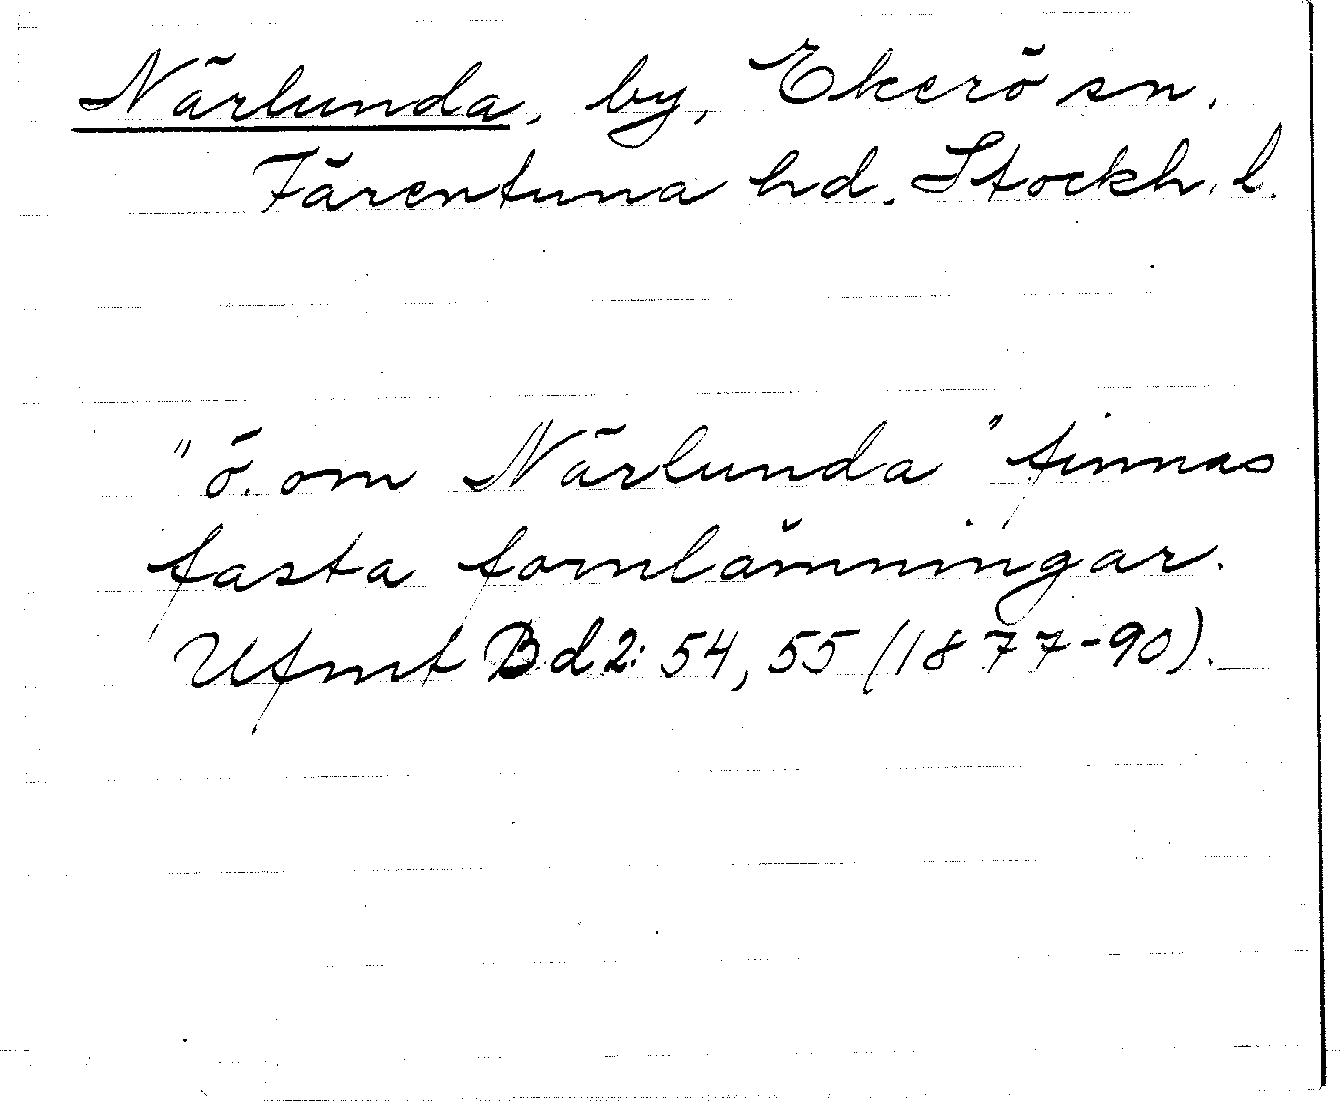 Närlunda, by, Ekerö sn.
Färentuna hd. Stockh. l.
"ö. om Närlunda" finnas
fasta fornlämningar.
Ufmt Bd 2: 54, 55 (1877-90).